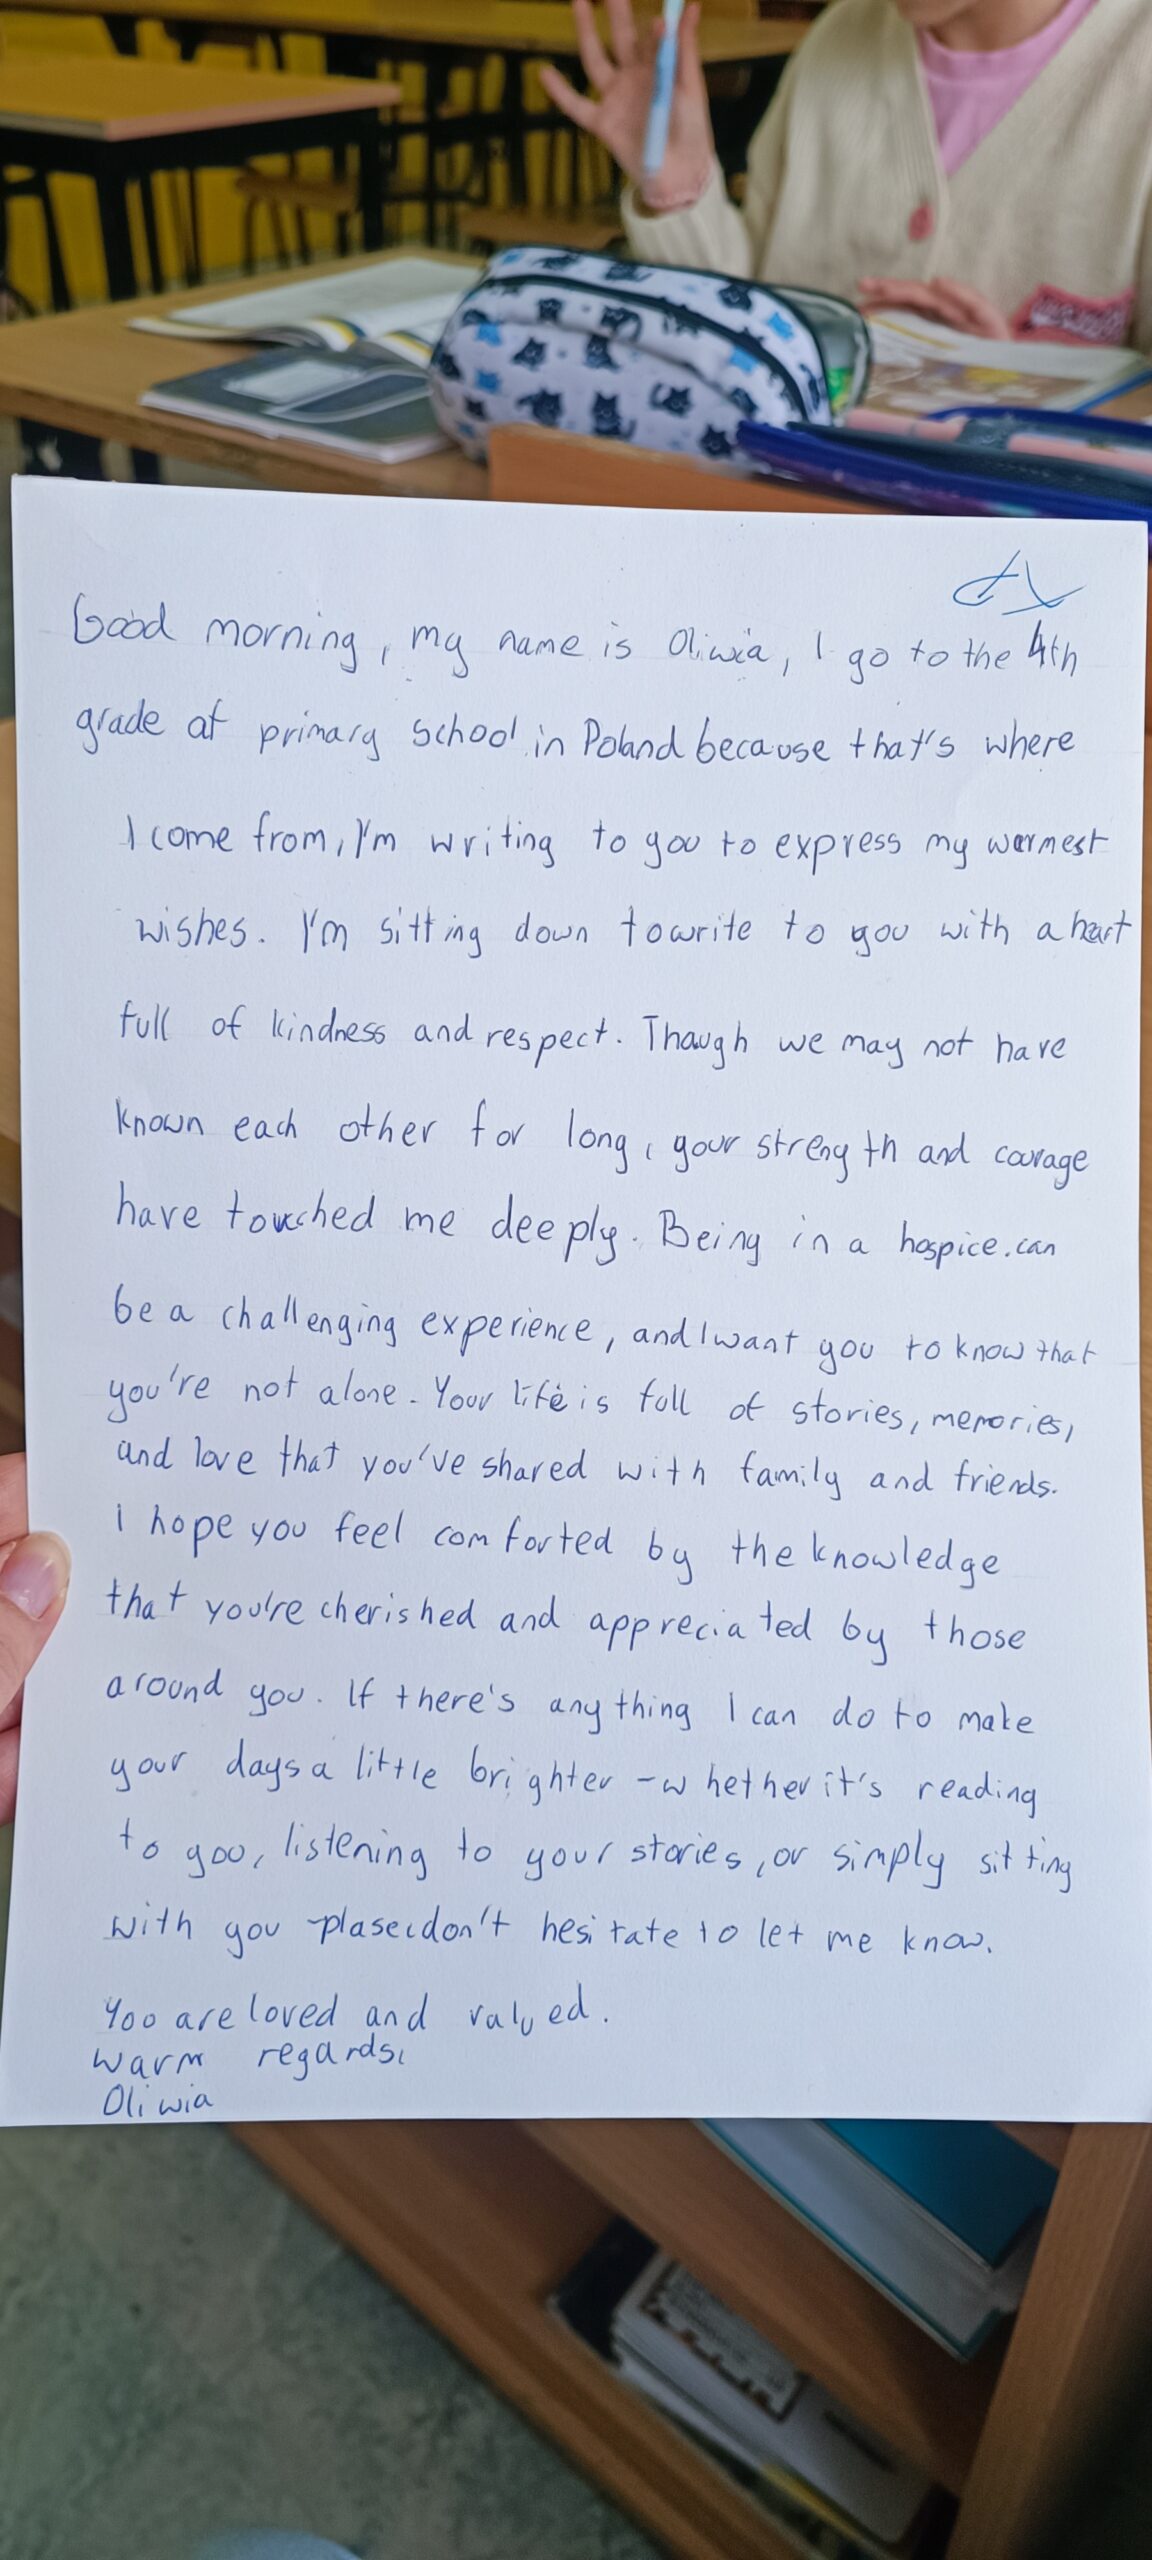 Good morning, my name is Oliwia, I go to the 4th
grade at primary school in Poland because that's where
I come from, I'm writing to you to express my warmest
wishes. I'm sitting down to write to you with a heart
full of kindness and respect. Though we may not have
known each other for long, your strength and courage
have touched me deeply. Being in a hospice can
be a challenging experience, and I want you to know that
you're not alone. Your life is full of stories, memories,
and love that you've shared with family and friends.
I hope you feel comforted by the knowledge
that you're cherished and appreciated by those
around you. If there's any thing I can do to make
your days a little brighter - whether it's reading
to you, listening to your stories, or simply sitting
with you - plase, don't hesitate to let me know.
You are loved and valued.
Warm regards,
Oliwia